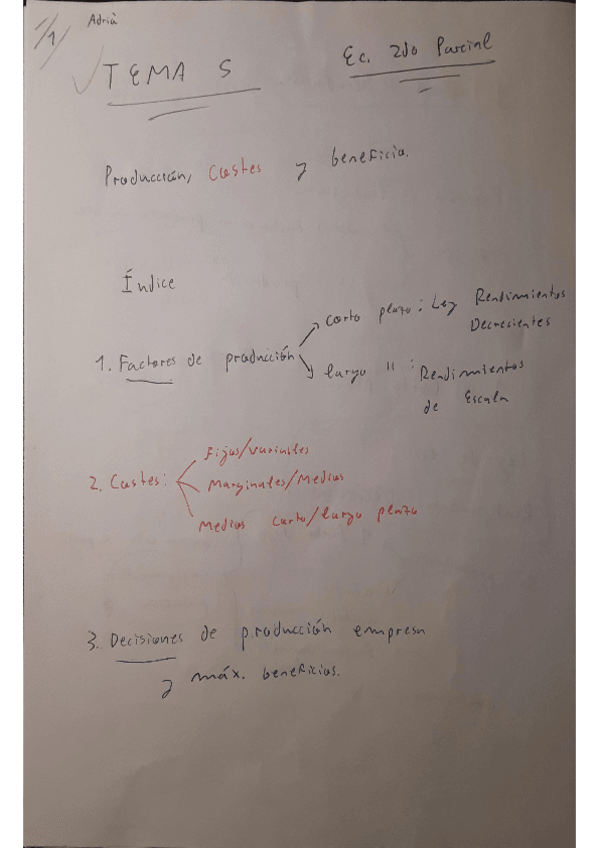 Adrià
1/1
TEMA 5
Ec. 2do Parcial
Producción, Costes y beneficio.
Índice
1. Factores de producción
corto plazo: Ley Rendimientos
Decrecientes
largo " : Rendimientos
de Escala
2. Costes:
Fijos/variables
Marginales/Medios
Medios corto/largo plazo
3. Decisiones de producción empresa
y máx. beneficios.